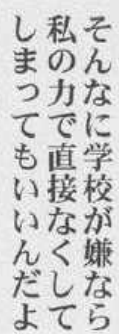 そんなに学校が嫌なら
私の力で直接なくして
しまってもいいんだよ